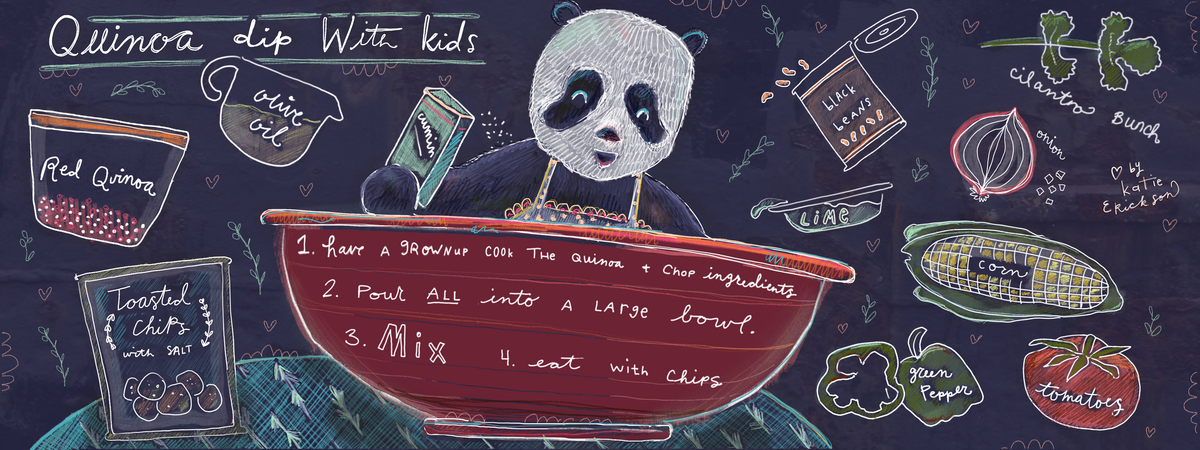 Quinoa dip With kids
olive
oil
cumin
Red Quinoa
Toasted
Chips
with SALT
1. have A GROWNUP COOK THE Quinoa + CHOP ingredients
2. Pour ALL into A LARge bowl.
3. Mix
4. eat with Chips
bLACK
beANS
LiME
cilantro
BUNCH
onion
by
Katie
Erickson
corn
green
Pepper
tomatoes